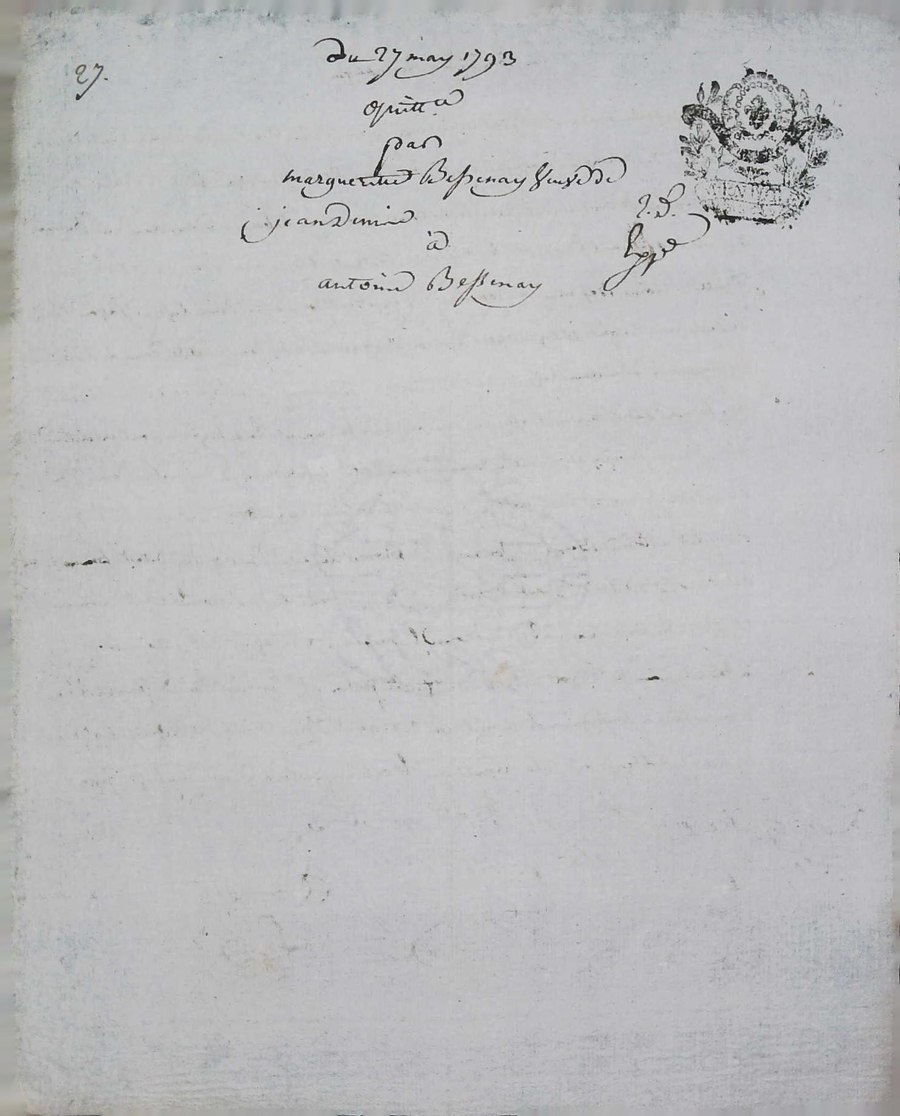 27.
du 27 may 1793
quitt.ce
par
margueritte Bessenay veuve de
jean
à
antoine Bessenay
Exp.é